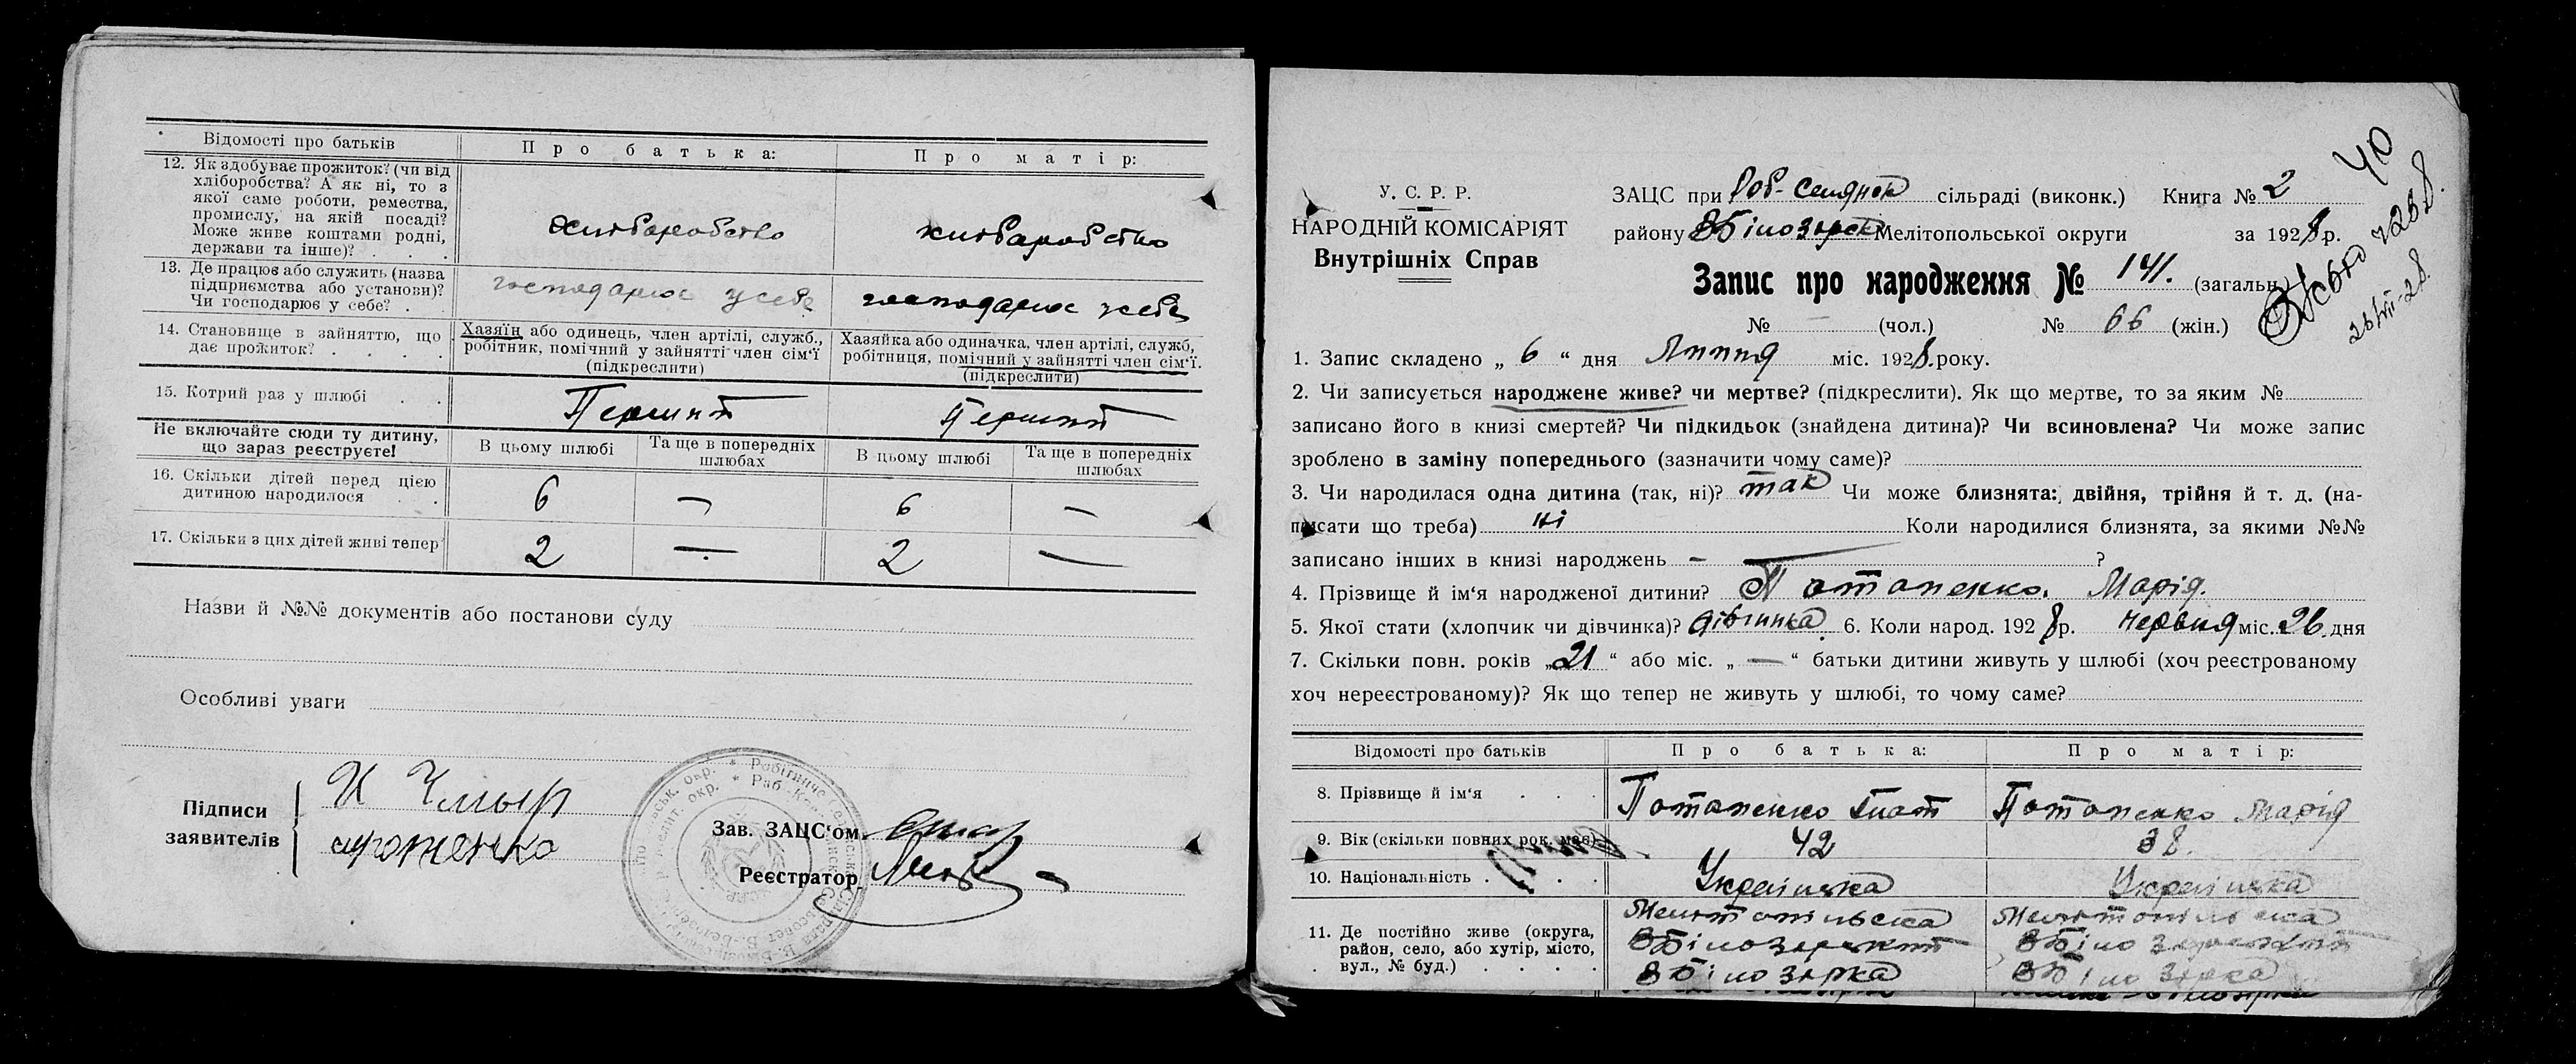 Відомості про батьків
Про батька:
Про матір:
12. Як здобуває прожиток? (чи від
хліборобства? А як ні, то з
якої саме роботи, ремества,
промислу, на якій посаді?
Може живе коштами родні,
держави та інше)? . . .
хлібаробство
хлібаробство
13. Де працює або служить (назва
підприємства або установи)?
Чи господарює у себе? .
господарює у себе
господарює у себе
14. Становище в зайняттю, що
дає прожиток? . . . .
Хазяїн або одинець, член артілі, служб.,
робітник, помічний у зайнятті член сім'ї
(підкреслити)
Хазяйка або одиначка, член артілі, служб,
робітниця, помічний у зайнятті член сім'ї.
(підкреслити)
15. Котрий раз у шлюбі . .
Перший
Перший
Не включайте сюди ту дитину,
що зараз реєструєте!
В цьому шлюбі
Та ще в попередніх
шлюбах
В цьому шлюбі
Та ще в попередніх
шлюбах
16. Скільки дітей перед цією
дитиною народилося . .
6 — 6 —
17. Скільки з цих дітей живі тепер
2 — 2 —
Назви й №№ документів або постанови суду
Особливі уваги
Підписи
заявителів
И Чмыр
Зав. ЗАЦС'ом
Реєстратор
У. С. Р. Р.
НАРОДНІЙ КОМІСАРІЯТ
Внутрішніх Справ
ЗАЦС при Роб-Селянск сільраді (виконк.) Книга № 2
району ВБілозерск Мелітопольської округи за 1928 р.
Запис про народження № 141. (загальн.)
№ — (чол.) № 66 (жін.)
40
26/VII-28.
1. Запис складено „ 6 “ дня Липня міс. 1928. року.
2. Чи записується народжене живе? чи мертве? (підкреслити). Як що мертве, то за яким №
записано його в книзі смертей? Чи підкидьок (знайдена дитина)? Чи всиновлена? Чи може запис
зроблено в заміну попереднього (зазначити чому саме)?
3. Чи народилася одна дитина (так, ні)? так Чи може близнята: двійня, трійня й т. д. (на-
писати що треба) ні Коли народилися близнята, за якими №№
записано інших в книзі народжень — ?
4. Прізвище й ім'я народженої дитини? Потапенко. Марія.
5. Якої стати (хлопчик чи дівчинка)? дівчинка 6. Коли народ. 1928 р. червня міс. 26 дня
7. Скільки повн. років „ 21 “ або міс. „ — “ батьки дитини живуть у шлюбі (хоч реєстрованому
хоч нереєстрованому)? Як що тепер не живуть у шлюбі, то чому саме?
Відомості про батьків
Про батька:
Про матір:
8. Прізвище й ім'я . . .
Потапенко Гнат
Потапенко Марія
9. Вік (скільки повних рок. має)
42
38.
10. Національність . . . .
Українка
Українка
11. Де постійно живе (округа,
район, село, або хутір, місто,
вул., № буд.) . . . .
Мелітопільска
ВБілозерский
ВБілозірка
Мелітопільска
ВБілозерский
ВБілозірка